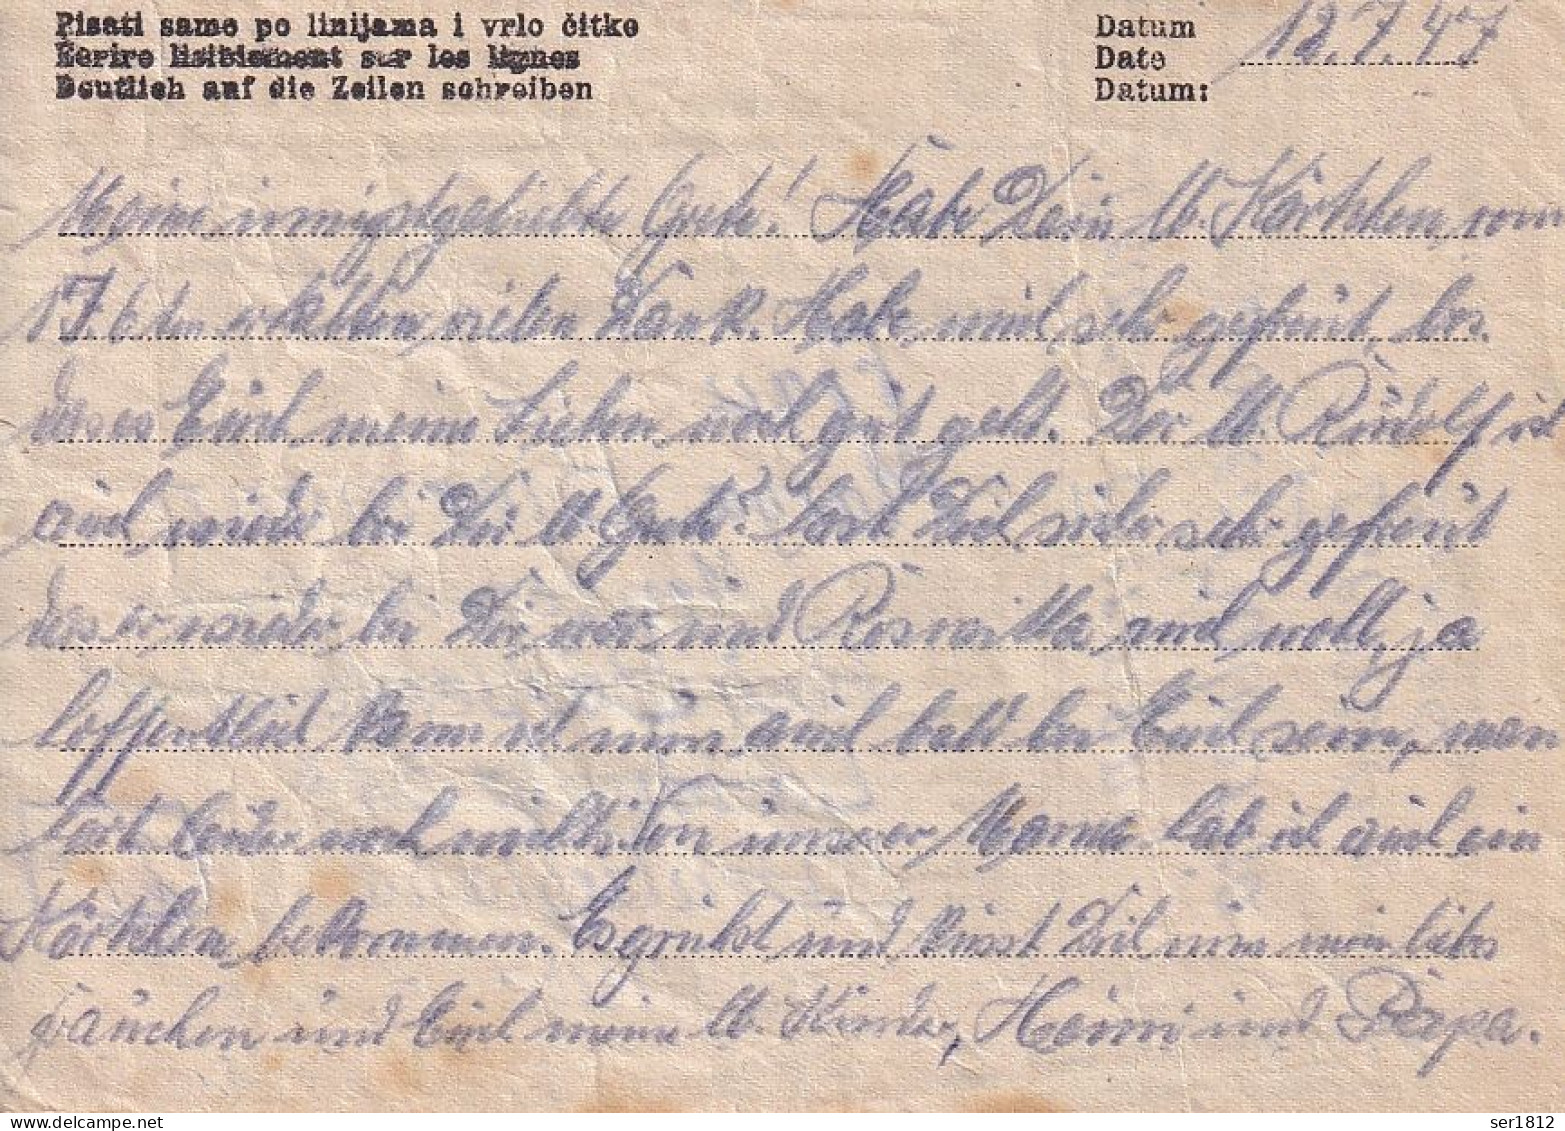 Pisati samo po linijama i vrlo čitke
Ecrire lisiblement sur les lignes
Deutlich auf die Zeilen schreiben
Datum
Date
Datum:
12.7.47
Meine innigstgeliebte Grete! Habe Dein lb. Kärtchen vom
17.6 den erhalten, vielen Dank. Habe mich sehr gefreut, bes.
dass es Euch meine Lieben noch gut geht. Der lb. Rudolf ist
auch wieder bei Dir lb. Grete. Hast Dich sicher sehr gefreut
das er wieder bei Dir war und Roswitha auch wohl, ja
hoffentlich kann ich nun auch bald bei Euch sein, man
hört leider noch nichts. Von unserer Mama hab ich auch ein
Kärtchen bekommen. Es grüßt und küsst Dich nun mein liebes
Frauchen und Euch meine lb. Kinder, Heini und Papa.
ser1812